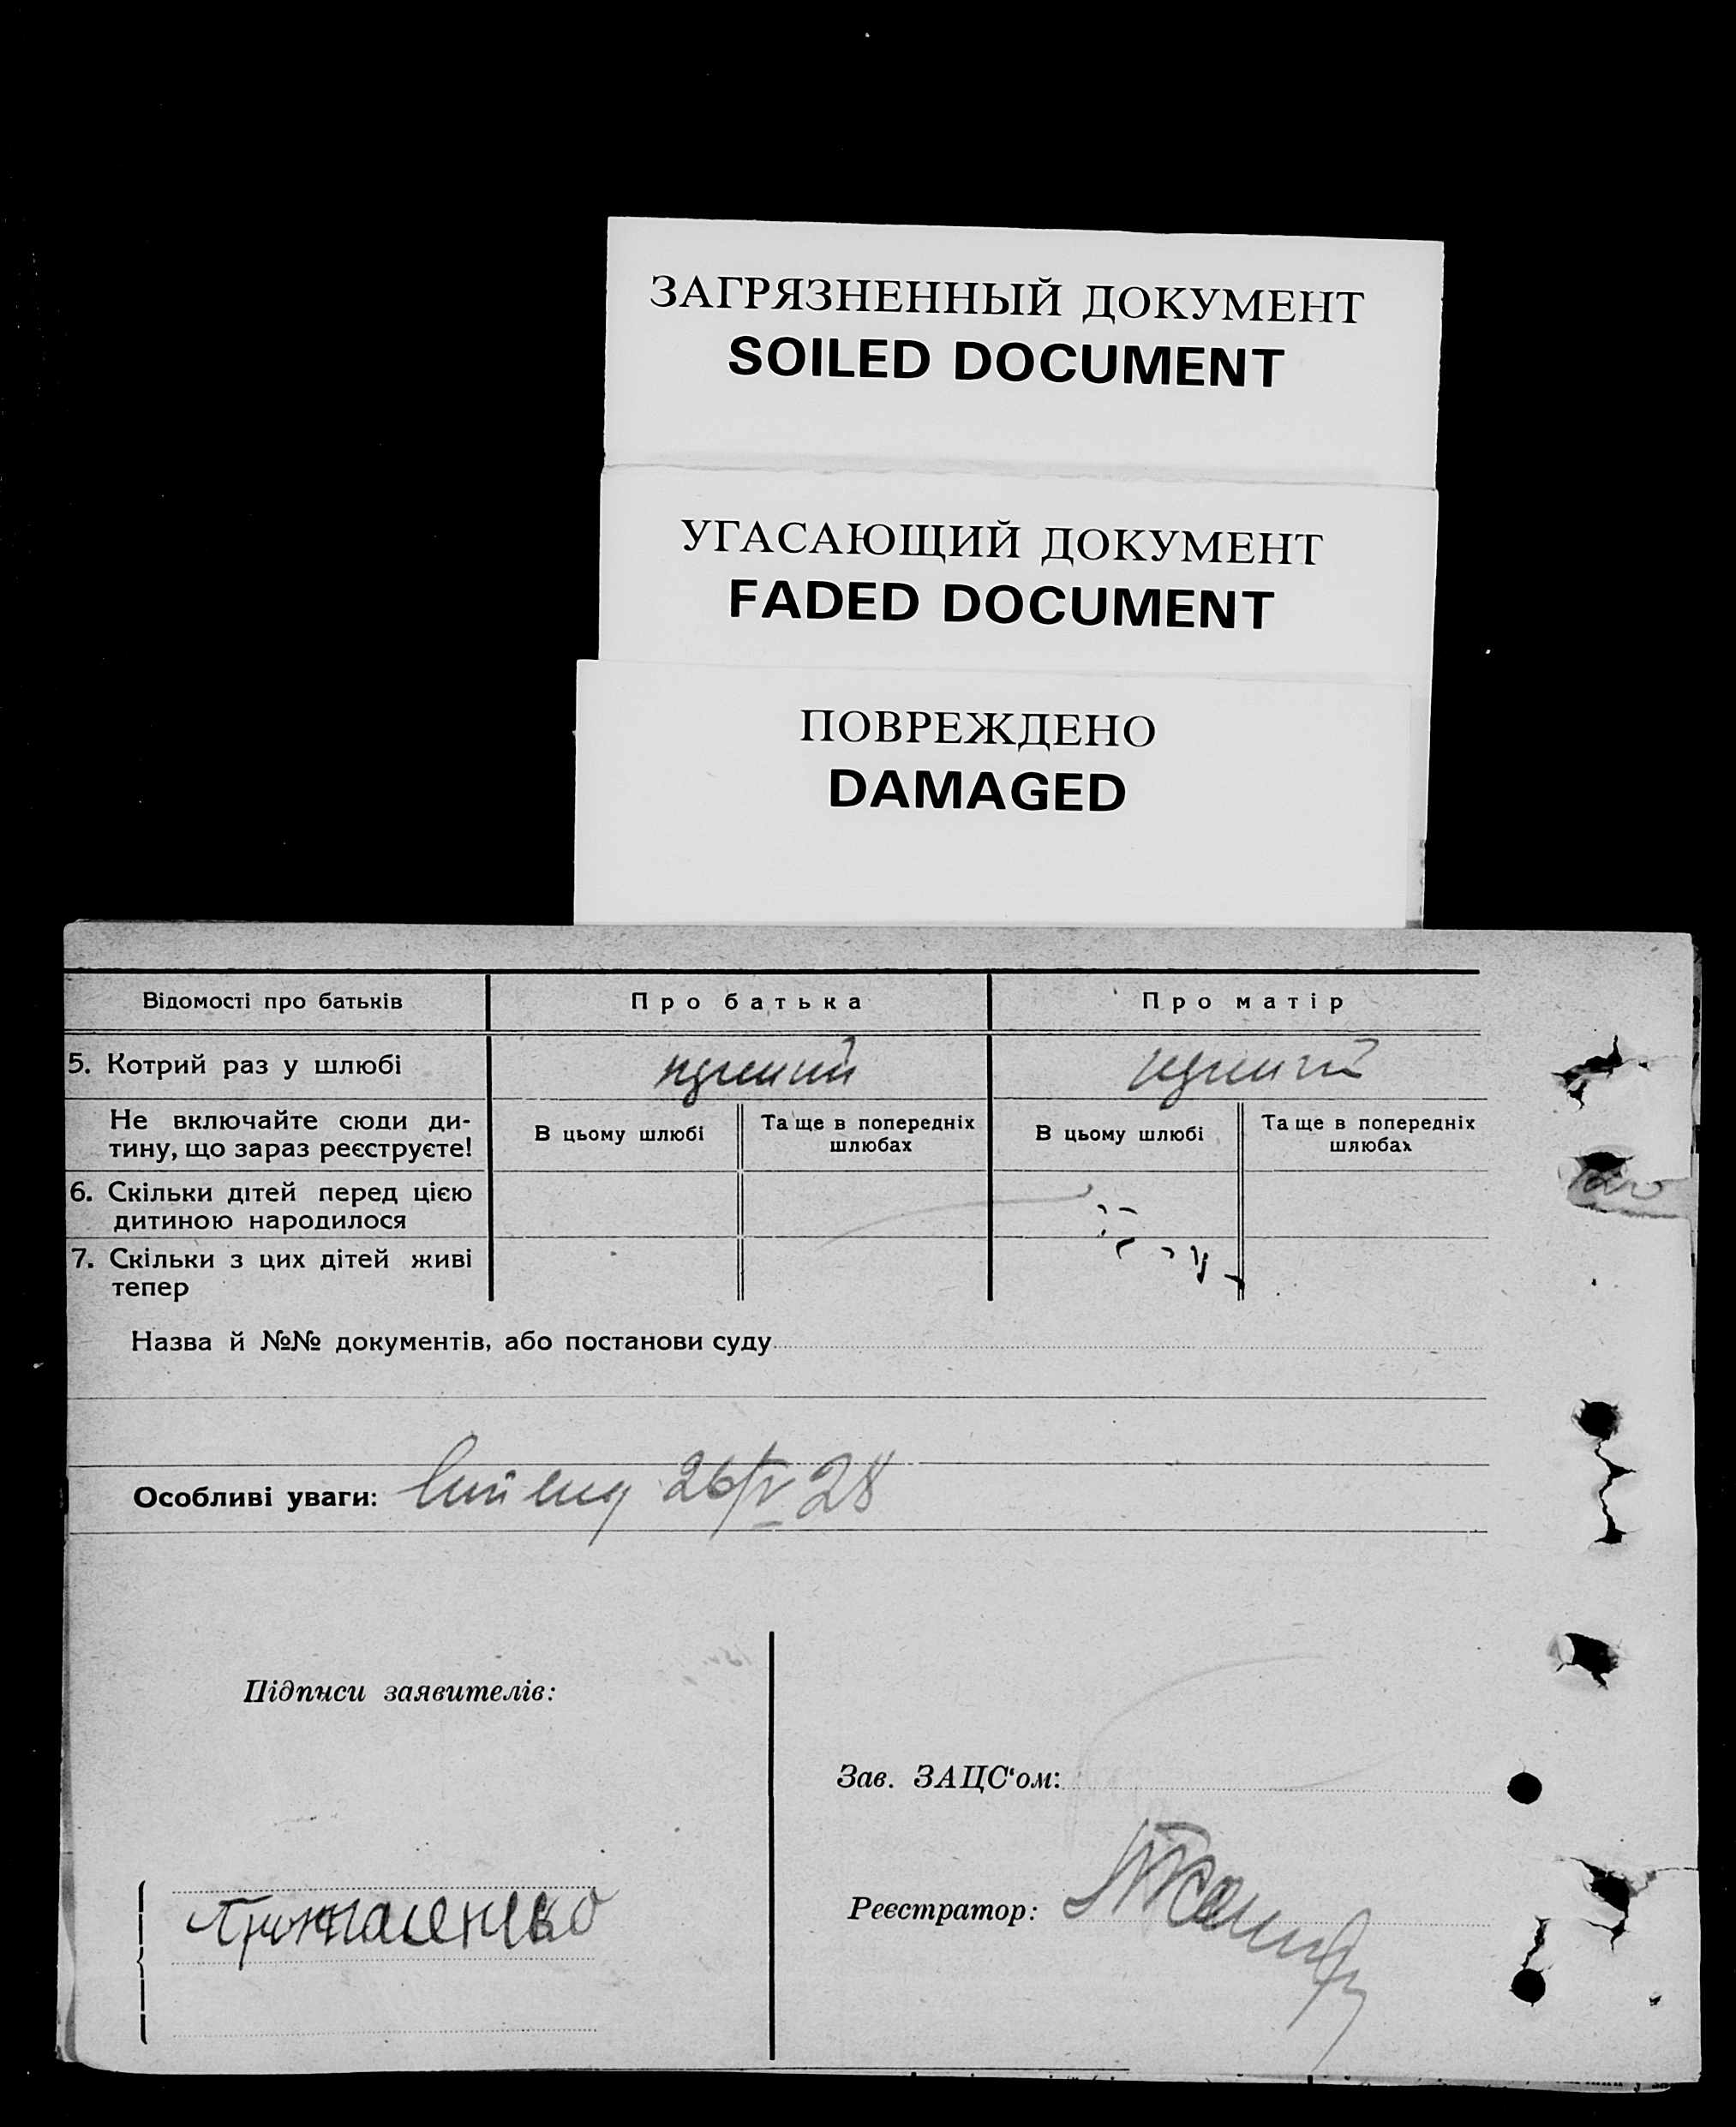 ЗАГРЯЗНЕННЫЙ ДОКУМЕНТ
SOILED DOCUMENT
УГАСАЮЩИЙ ДОКУМЕНТ
FADED DOCUMENT
ПОВРЕЖДЕНО
DAMAGED
Відомості про батьків Про батька Про матір
5. Котрий раз у шлюбі
Не включайте сюди ди-
тину, що зараз реєструєте!
В цьому шлюбі
Та ще в попередніх
шлюбах
В цьому шлюбі
Та ще в попередніх
шлюбах
6. Скільки дітей перед цією
дитиною народилося
7. Скільки з цих дітей живі
тепер
Назва й №№ документів, або постанови суду
Особливі уваги: 26/V 28
Підписи заявителів:
Зав. ЗАЦС‘ом:
Реєстратор: